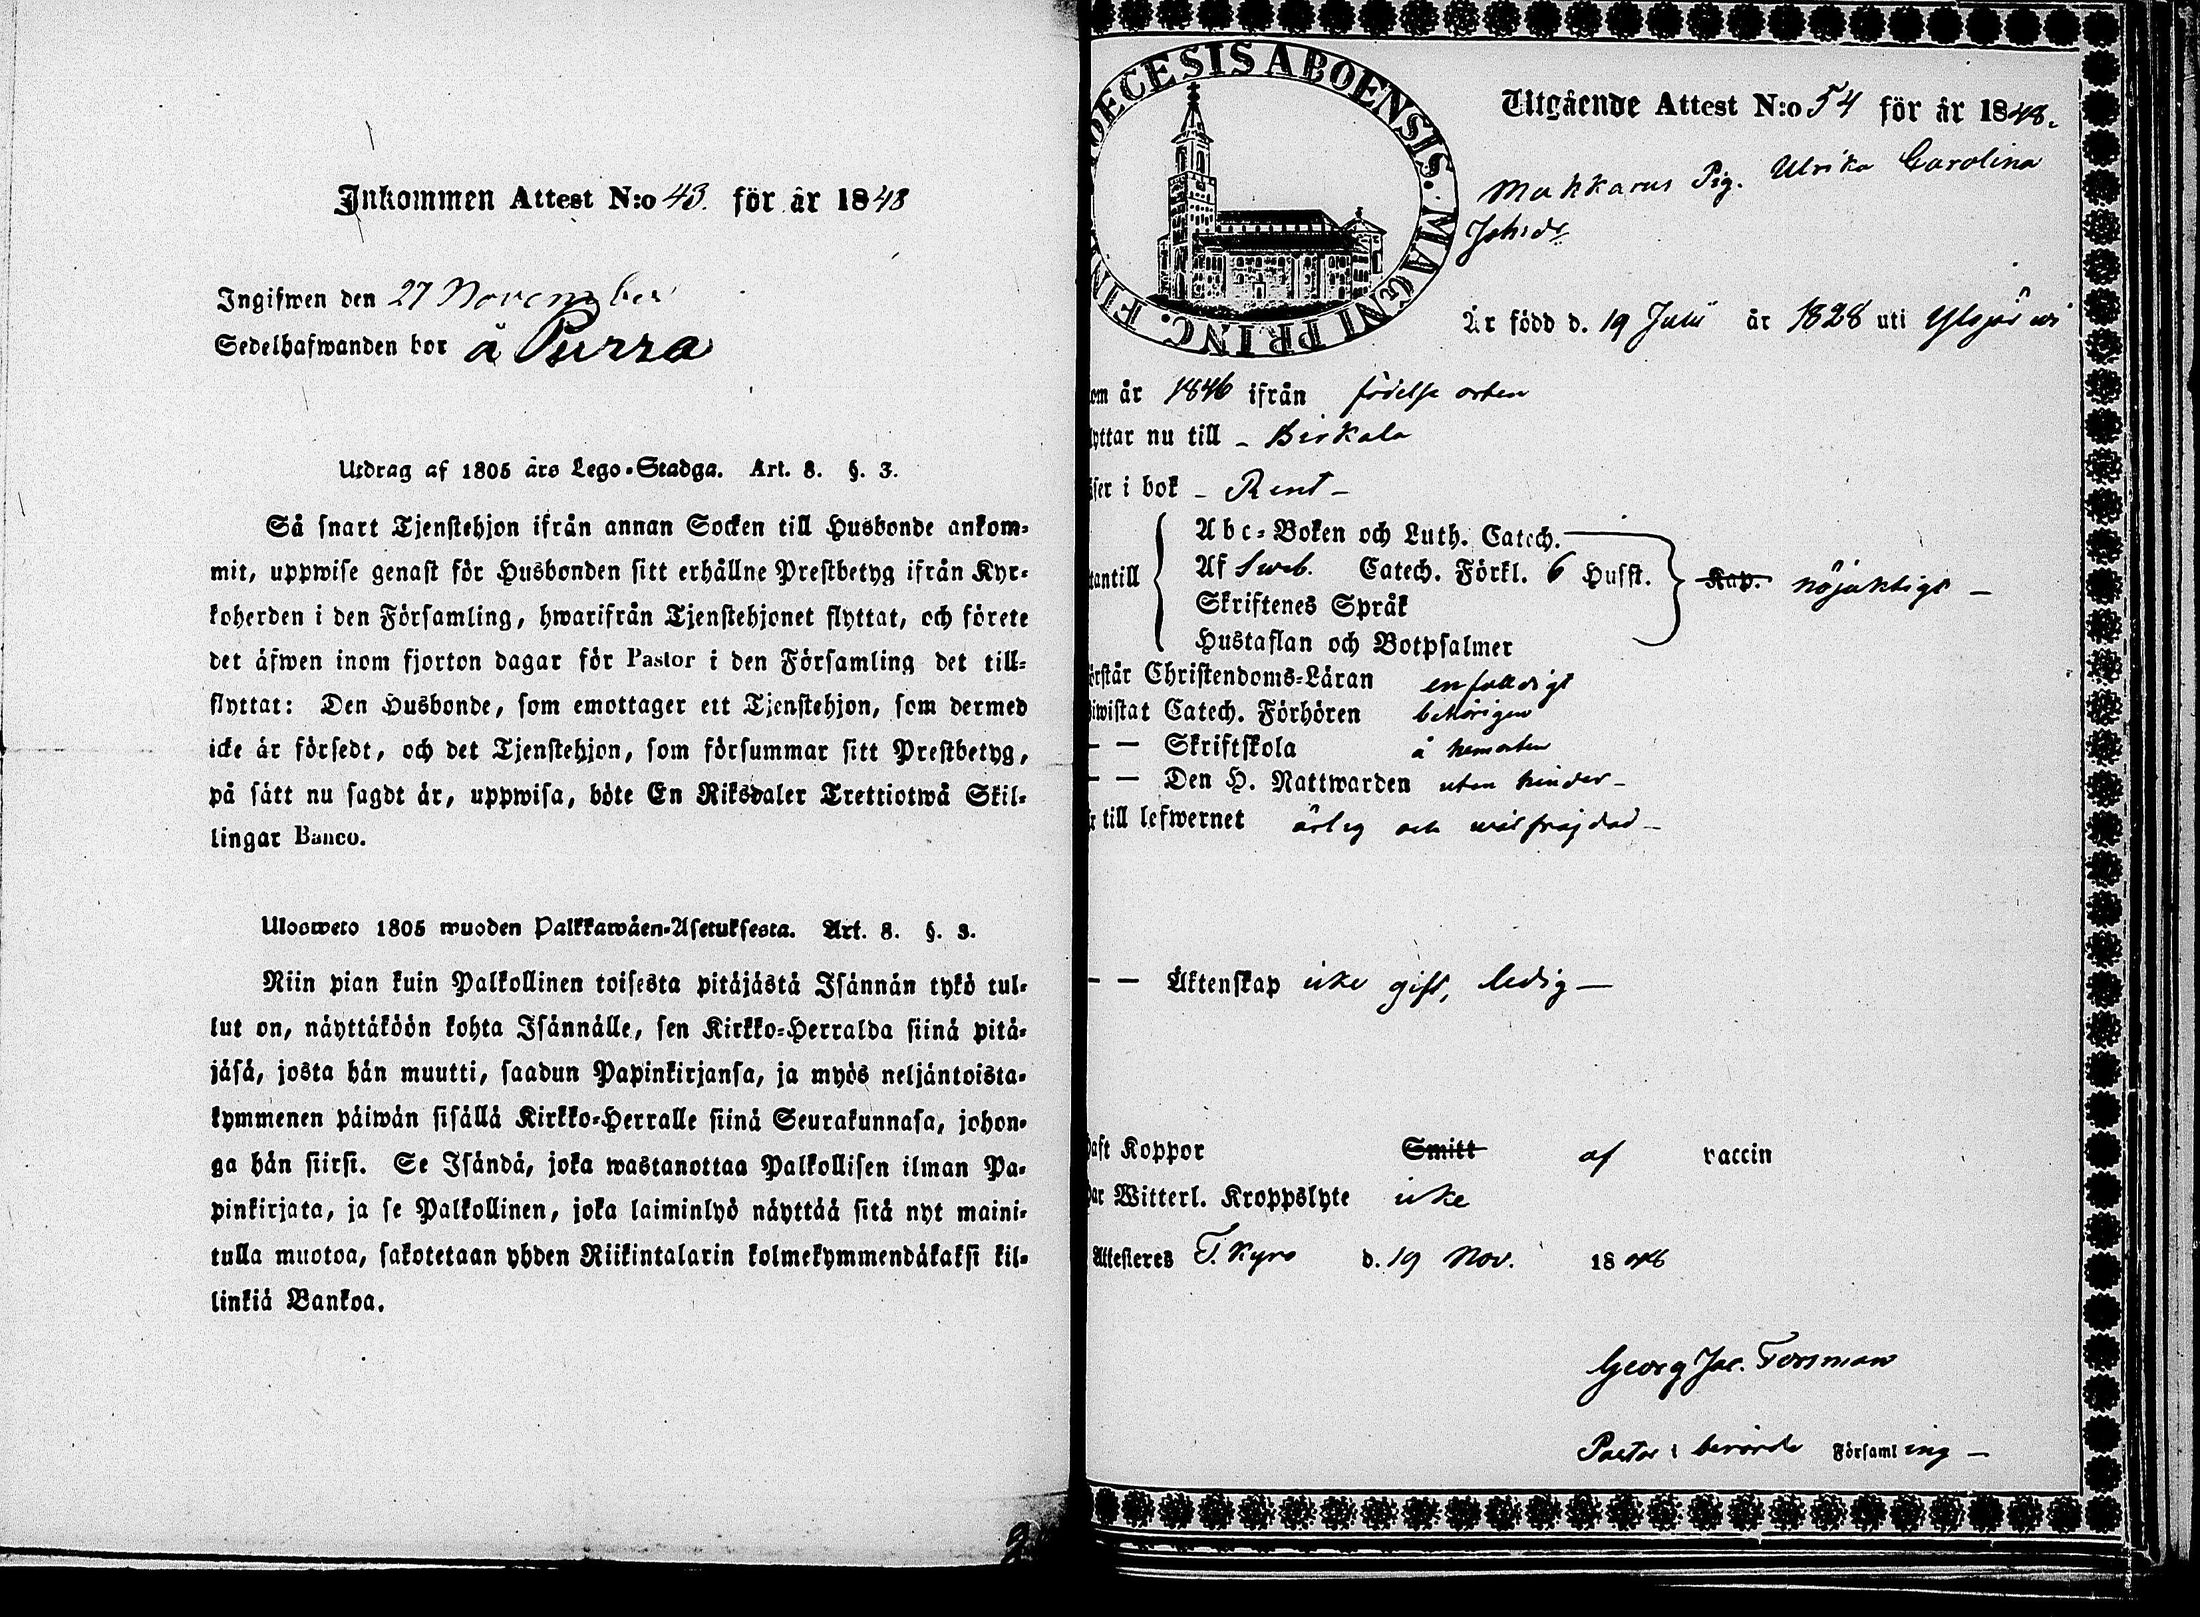 Inkommen Attest N:o 43. för år 1848
Ingifwen den 27 November
Sedelhafwanden bor å Purra
Utdrag af 1805 års Lego-Stadga. Art. 8. §. 3.
Så snart Tjenstehjon ifrån annan Socken till Husbonde ankom-
mit, uppwise genast för Husbonden sitt erhållne Prestbetyg ifrån Kyr-
koherden i den Församling, hwarifrån Tjenstehjonet flyttat, och förete
det äfwen inom fjorton dagar för Pastor i den Församling det till-
flyttat: Den Husbonde, som emottager ett Tjenstehjon, som dermed
icke är försedt, och det Tjenstehjon, som försummar sitt Prestbetyg,
på sätt nu sagdt är, uppwisa, böte En Riksdaler Trettiotwå Skil-
lingar Banco.
Ulosweto 1805 wuoden Palkkawäen-Asetuksesta. Art. 8. §. 3.
Niin pian kuin Palkollinen toisesta pitäjästä Isännän tykö tul-
lut on, näyttäköön kohta Isännälle, sen Kirkko-Herralda siinä pitä-
jäsä, josta hän muutti, saadun Papinkirjansa, ja myös neljäntoista-
kymmenen päiwän sisällä Kirkko-Herralle siinä Seurakunnasa, johon-
ga hän siirsi. Se Isändä, joka wastanottaa Palkollisen ilman Pa-
pinkirjata, ja se Palkollinen, joka laiminlyö näyttää sitä nyt maini-
tulla muotoa, sakotetaan yhden Riikintalarin kolmekymmendäkaksi kil-
linkiä Bankoa.
DECESIS ABOENSIS. MAGNI PRINC. FIN
Utgående Attest N:o 54 för år 1848.
Makkarus Pig. Ulrika Carolina
Johsdr
Är född d. 19 Julii år 1828 uti Ylöjärwi
om år 1846 ifrån födelse orten
yttar nu till - Birkala
ser i bok - Rent -
Abc-Boken och Luth. Catech.
tantill Af Sweb. Catech. Förkl. 6 Husst. Kap. nöjaktigt -
Skriftenes Språk
Hustaflan och Botpsalmer
örstår Christendoms-Läran enfaldigt
iwistat Catech. Förhören behörigen
— — Skriftskola å hemorten
— — Den H. Nattwarden utan hinder -
r till lefwernet ärlig och wälfrejdad -
— — Äktenskap icke gift, ledig —
haft Koppor Smitt af vaccin
har Witterl. Kroppslyte icke
Attesteres T. Kyro d. 19 Nov. 1848
Georg Jac. Forsman
Pastor i berörde Församling —